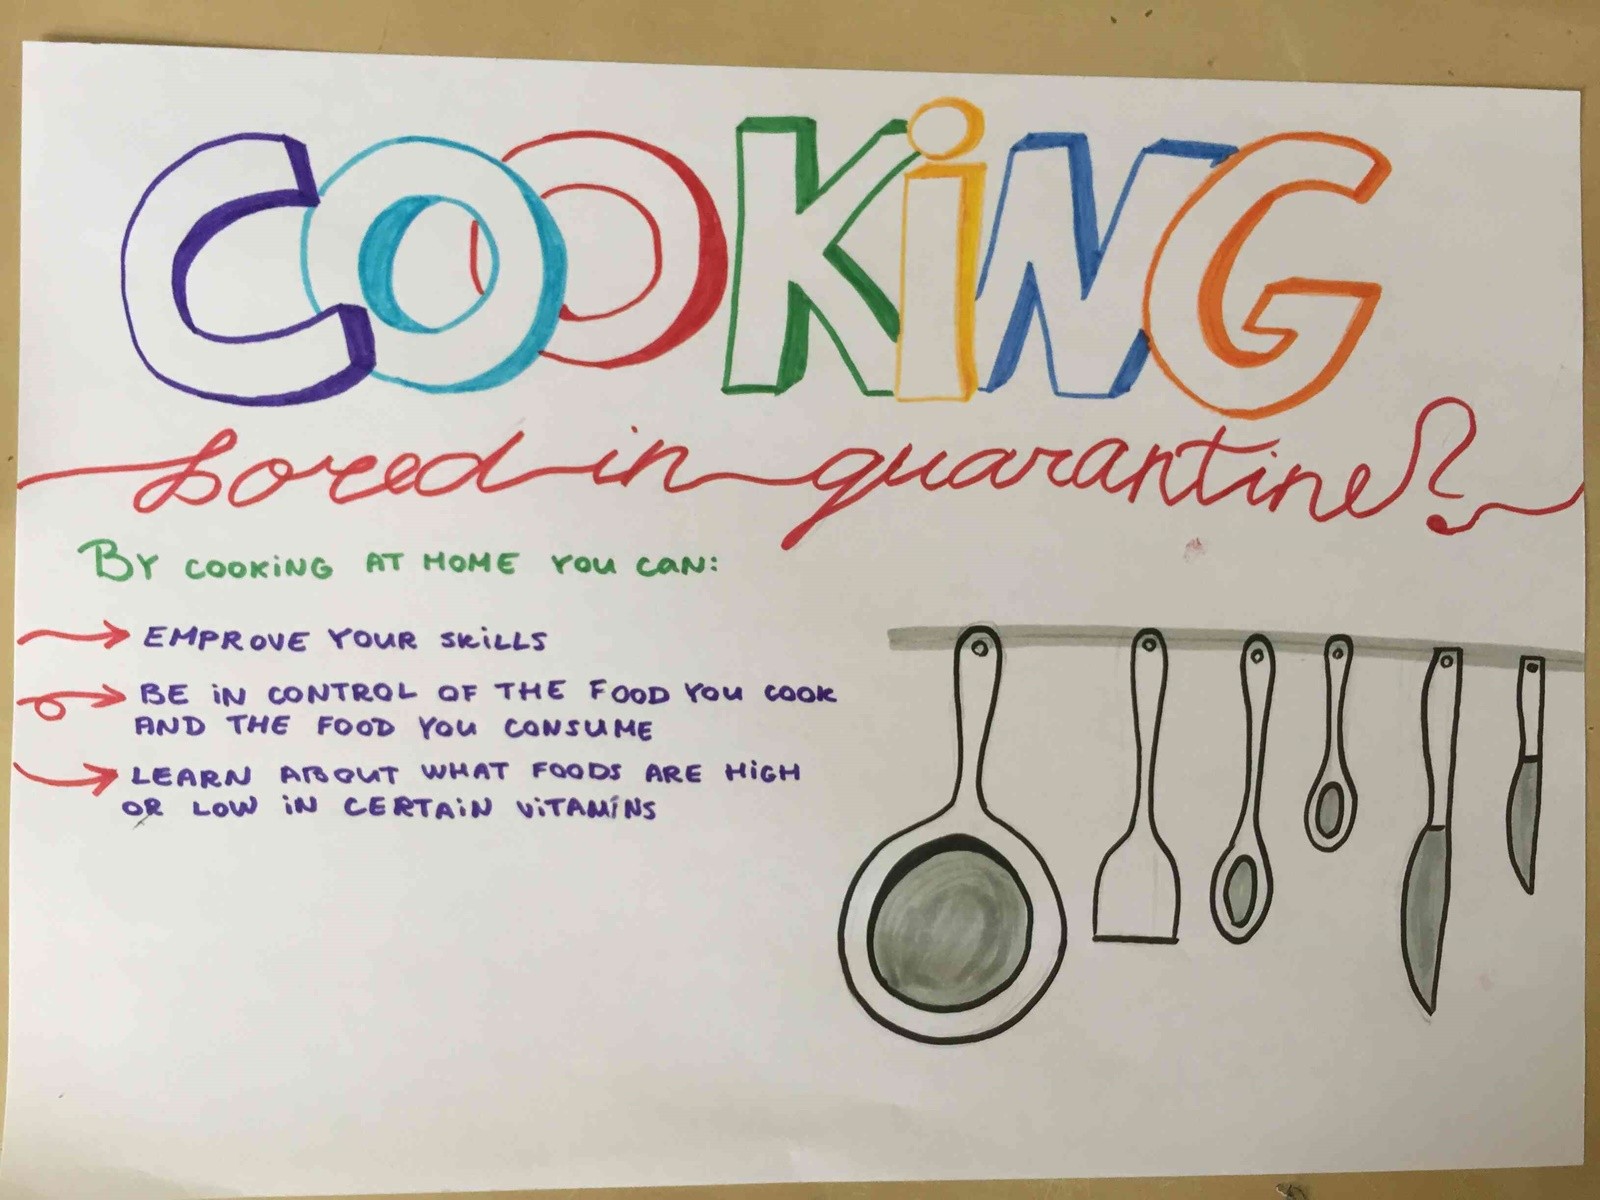 COOKiNG
bored in quarantine?
BY COOKING AT HOME YOU CAN:
EMPROVE YOUR SKILLS
BE IN CONTROL OF THE FOOD YOU COOK
AND THE FOOD YOU CONSUME
LEARN ABOUT WHAT FOODS ARE HIGH
OR LOW IN CERTAIN VITAMÍNS